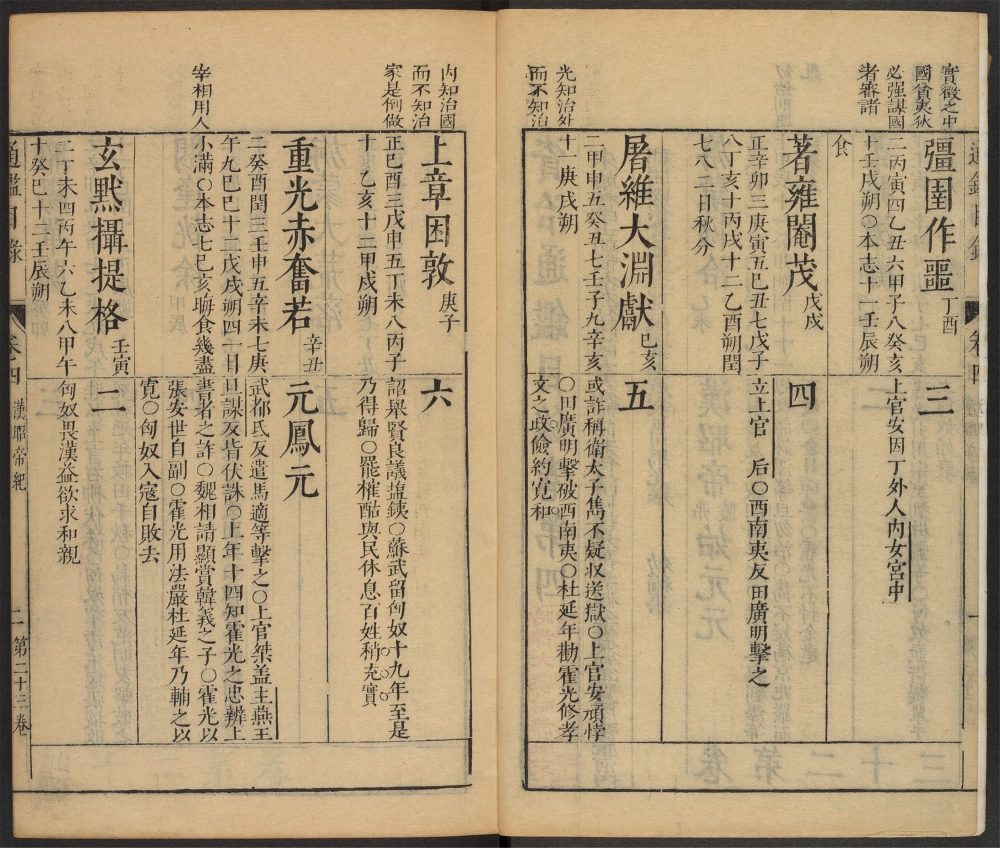 實徵之中
國貧夷狄
必强謀國
者審諸
彊圉作噩丁酉
二丙寅四乙丑六甲子八癸亥
十壬戌朔○本志十一壬辰朔
食
三
上官安因丁外人内女宮中
著雍閹茂戊戌
正辛卯三庚寅五己丑七戊子
八丁亥十丙戌十二乙酉朔閏
七八二日秋分
四
立上官 后○西南夷反田廣明擊之
光知治外
而不知治
屠維大淵獻己亥
二甲申五癸丑七壬子九辛亥
十一庚戌朔
五
或詐稱衛太子雋不疑収送獄○上官安頑悖
○田廣明擊破西南夷○杜延年勸霍光修孝
文之政儉約寛和
内知治國
而不知治
家是倒做
上章困敦庚子
正己酉三戊申五丁未八丙子
十乙亥十二甲戌朔
六
詔舉賢良議塩鐵○蘇武留匈奴十九年至是
乃得歸○罷榷酤與民休息百姓稍充實
重光赤奮若辛丑
二癸酉閏三壬申五辛未七庚
午九己巳十二戊戌朔四一日
小滿○本志七己亥晦食幾盡
元鳳元
武都氐反遣馬適等擊之○上官桀盖主燕王
旦謀反皆伏誅○上年十四知霍光之忠辨上
書者之詐○魏相請顯賞韓義之子○霍光以
張安世自副○霍光用法嚴杜延年乃輔之以
寛○匈奴入寇自敗去
宰相用人
玄黓攝提格壬寅
二丁未四丙午六乙未八甲午
十癸巳十二壬辰朔
二
匈奴畏漢益欲求和親
通鑑目錄
卷四
漢昭帝紀
二
第二十三卷